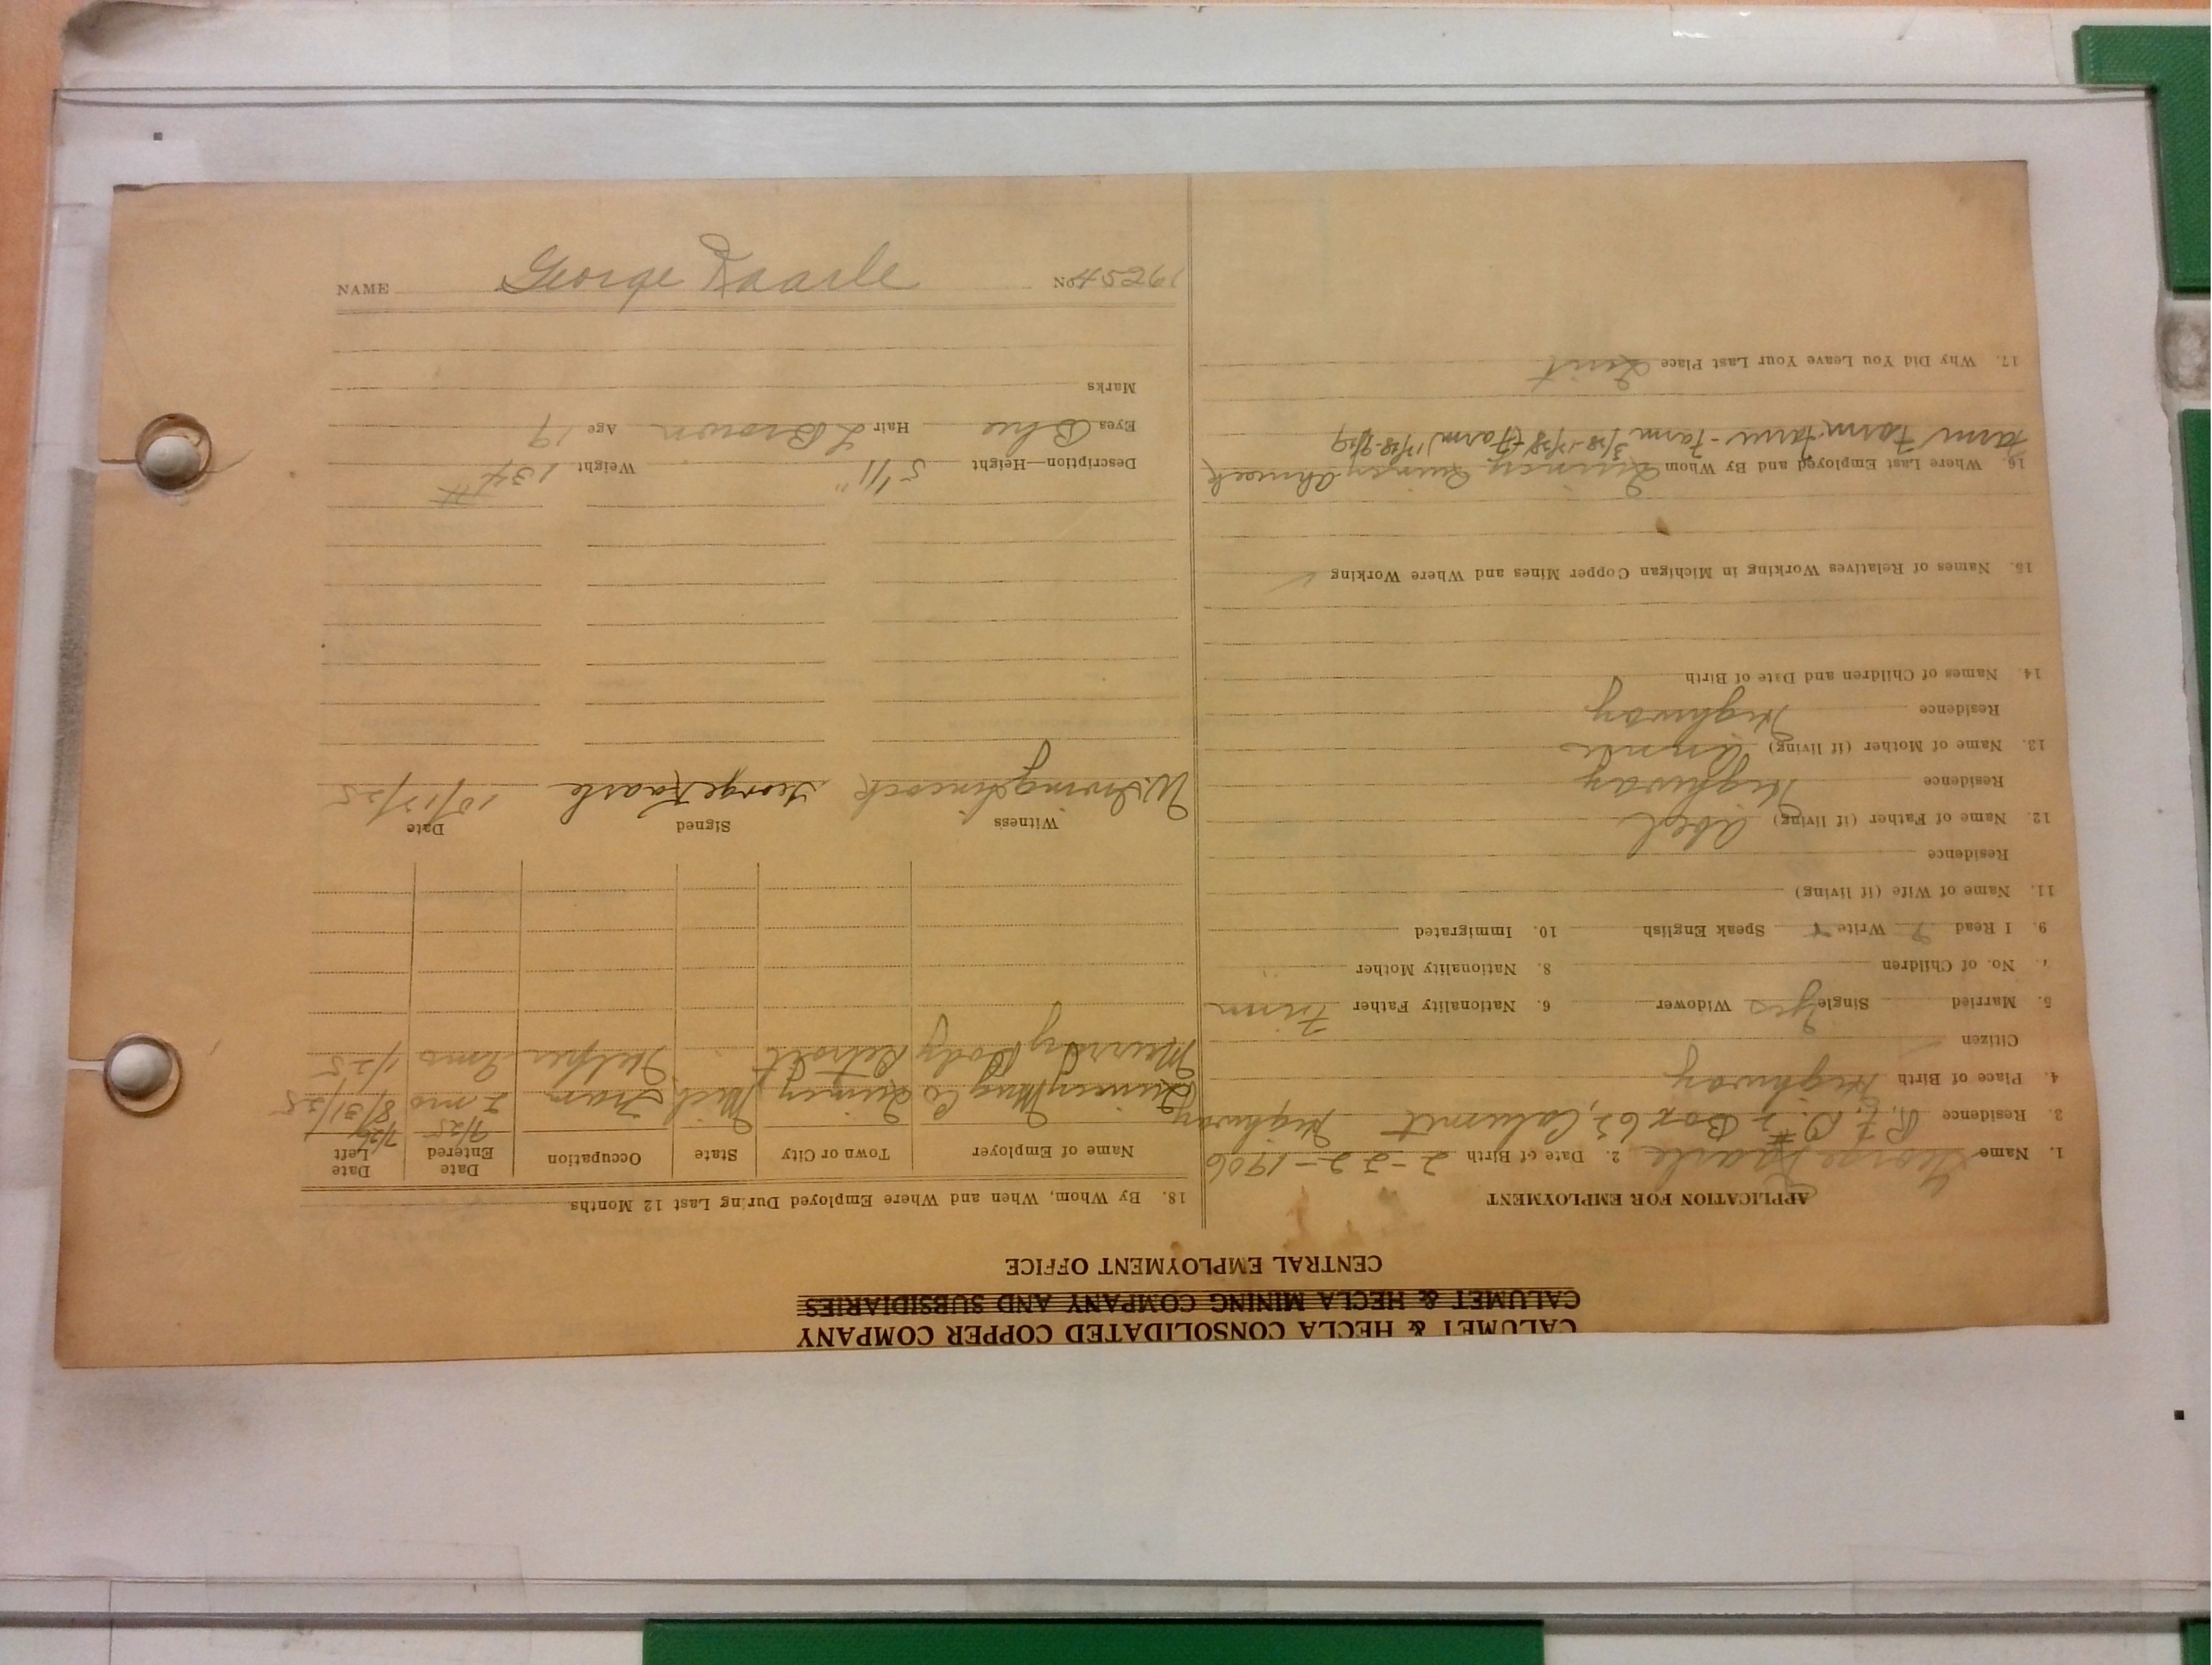 CALUMET & HECLA CONSOLIDATED COPPER COMPANY
CALUMET & HECLA MINING COMPANY AND SUBSIDIARIES
CENTRAL EMPLOYMENT OFFICE
APPLICATION FOR EMPLOYMENT
1. Name George Kaarle 2. Date of Birth 2-22-1906
3. Residence R.F.D. #2 Box 62, Calumet Highway
4. Place of Birth Highway
Citizen
5. Married Single yes Widower 6. Nationality Father Finn
7. No. of Children 8. Nationality Mother
9. I Read Write Speak English 10. Immigrated
11. Name of Wife (if living)
Residence
12. Name of Father (if living) Abel
Residence Highway
13. Name of Mother (if living)
Residence Highway
14. Names of Children and Date of Birth
15. Names of Relatives Working in Michigan Copper Mines and Where Working
16. Where Last Employed and By Whom Quincy, Quincy, Ahmeek
Farm Farm Farm - Farm
17. Why Did You Leave Your Last Place Quit
18. By Whom, When and Where Employed During Last 12 Months
Name of Employer Town or City State Occupation Date Entered Date Left
7/25 7/26
Quincy Mng Co Quincy Mich Tram 2 mo 8/31/25
Murray Body Detroit Helper 2mo 1/25
Witness Signed Date
George Kaarle 10/13/25
Description—Height 5'11" Weight 134#
Eyes Blue Hair L Brown Age 19
Marks
NAME George Kaarle NO. 45261